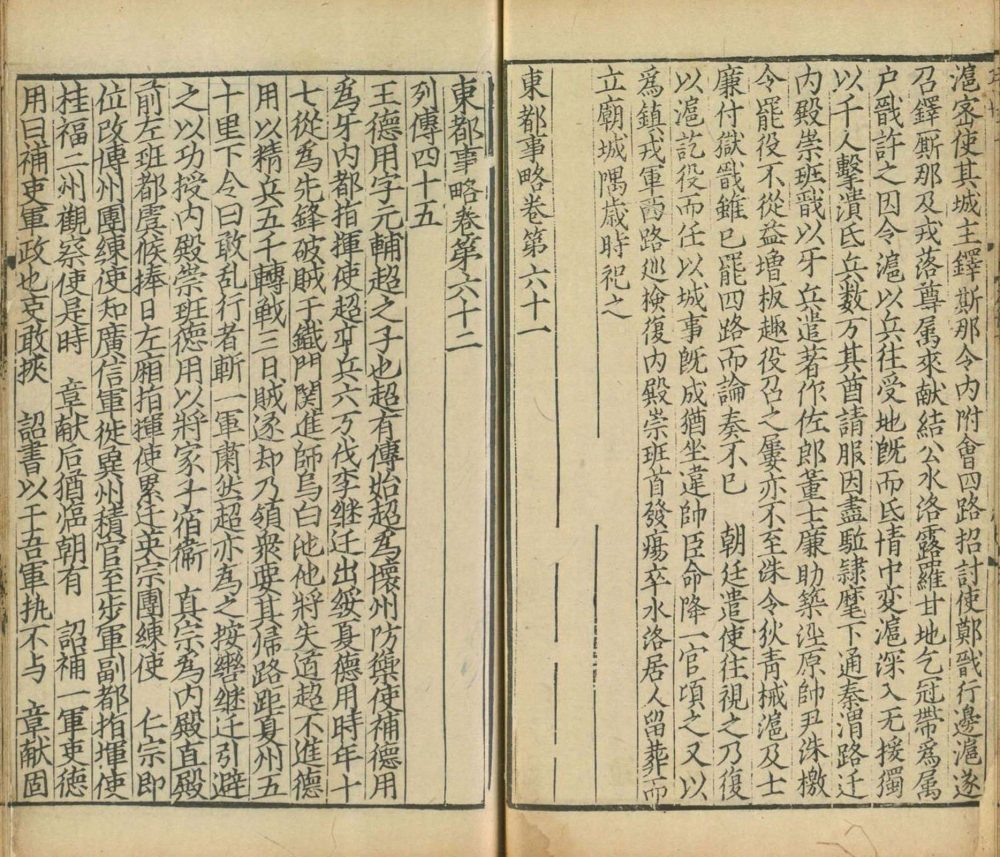 滬密使其城主鐸斯那令内附會四路招討使鄭戩行邊滬遂
召鐸厮那及戎落尊属來献結公水洛露羅甘地乞冠帶爲属
户戩許之因令滬以兵往受地旣而氐情中変滬深入无援獨
以千人擊潰氐兵数万其酋請服因盡駈隸麾下通秦渭路迁
内殿崇班戩以牙兵遣著作佐郎董士廉助築涇原帥尹洙檄
令罷役不從益增板趣役召之屢亦不至洙令狄青械滬及士
廉付獄戩雖已罷四路而論奏不已 朝廷遣使往視之乃復
以滬訖役而任以城事旣成猶坐違帥臣命降一官頃之又以
爲鎮戎軍西路巡檢復内殿崇班首發瘍卒水洛居人留葬而
立廟城隅歳時祀之
東都事略卷第六十一
東都事略卷第六十二
列傳四十五
王德用字元輔超之子也超有傳始超爲懷州防禦使補德用
爲牙内都指揮使超帥兵六万伐李継迁出綏夏德用時年十
七從爲先鋒破賊于鐵門関進師烏白池他將失道超不進德
用以精兵五千轉戰三日賊遂却乃領衆要其帰路距夏州五
十里下令曰敢乱行者斬一軍肅然超亦爲之按轡継迁引避
之以功授内殿崇班德用以將家子宿衞 真宗爲内殿直殿
前左班都虞候捧日左廂指揮使累迁英宗團練使 仁宗即
位改博州團練使知廣信軍徙兾州積官至步軍副都指揮使
桂福二州觀察使是時 章献后猶臨朝有 詔補一軍吏德
用曰補吏軍政也吏敢挾 詔書以干吾軍执不与 章献固